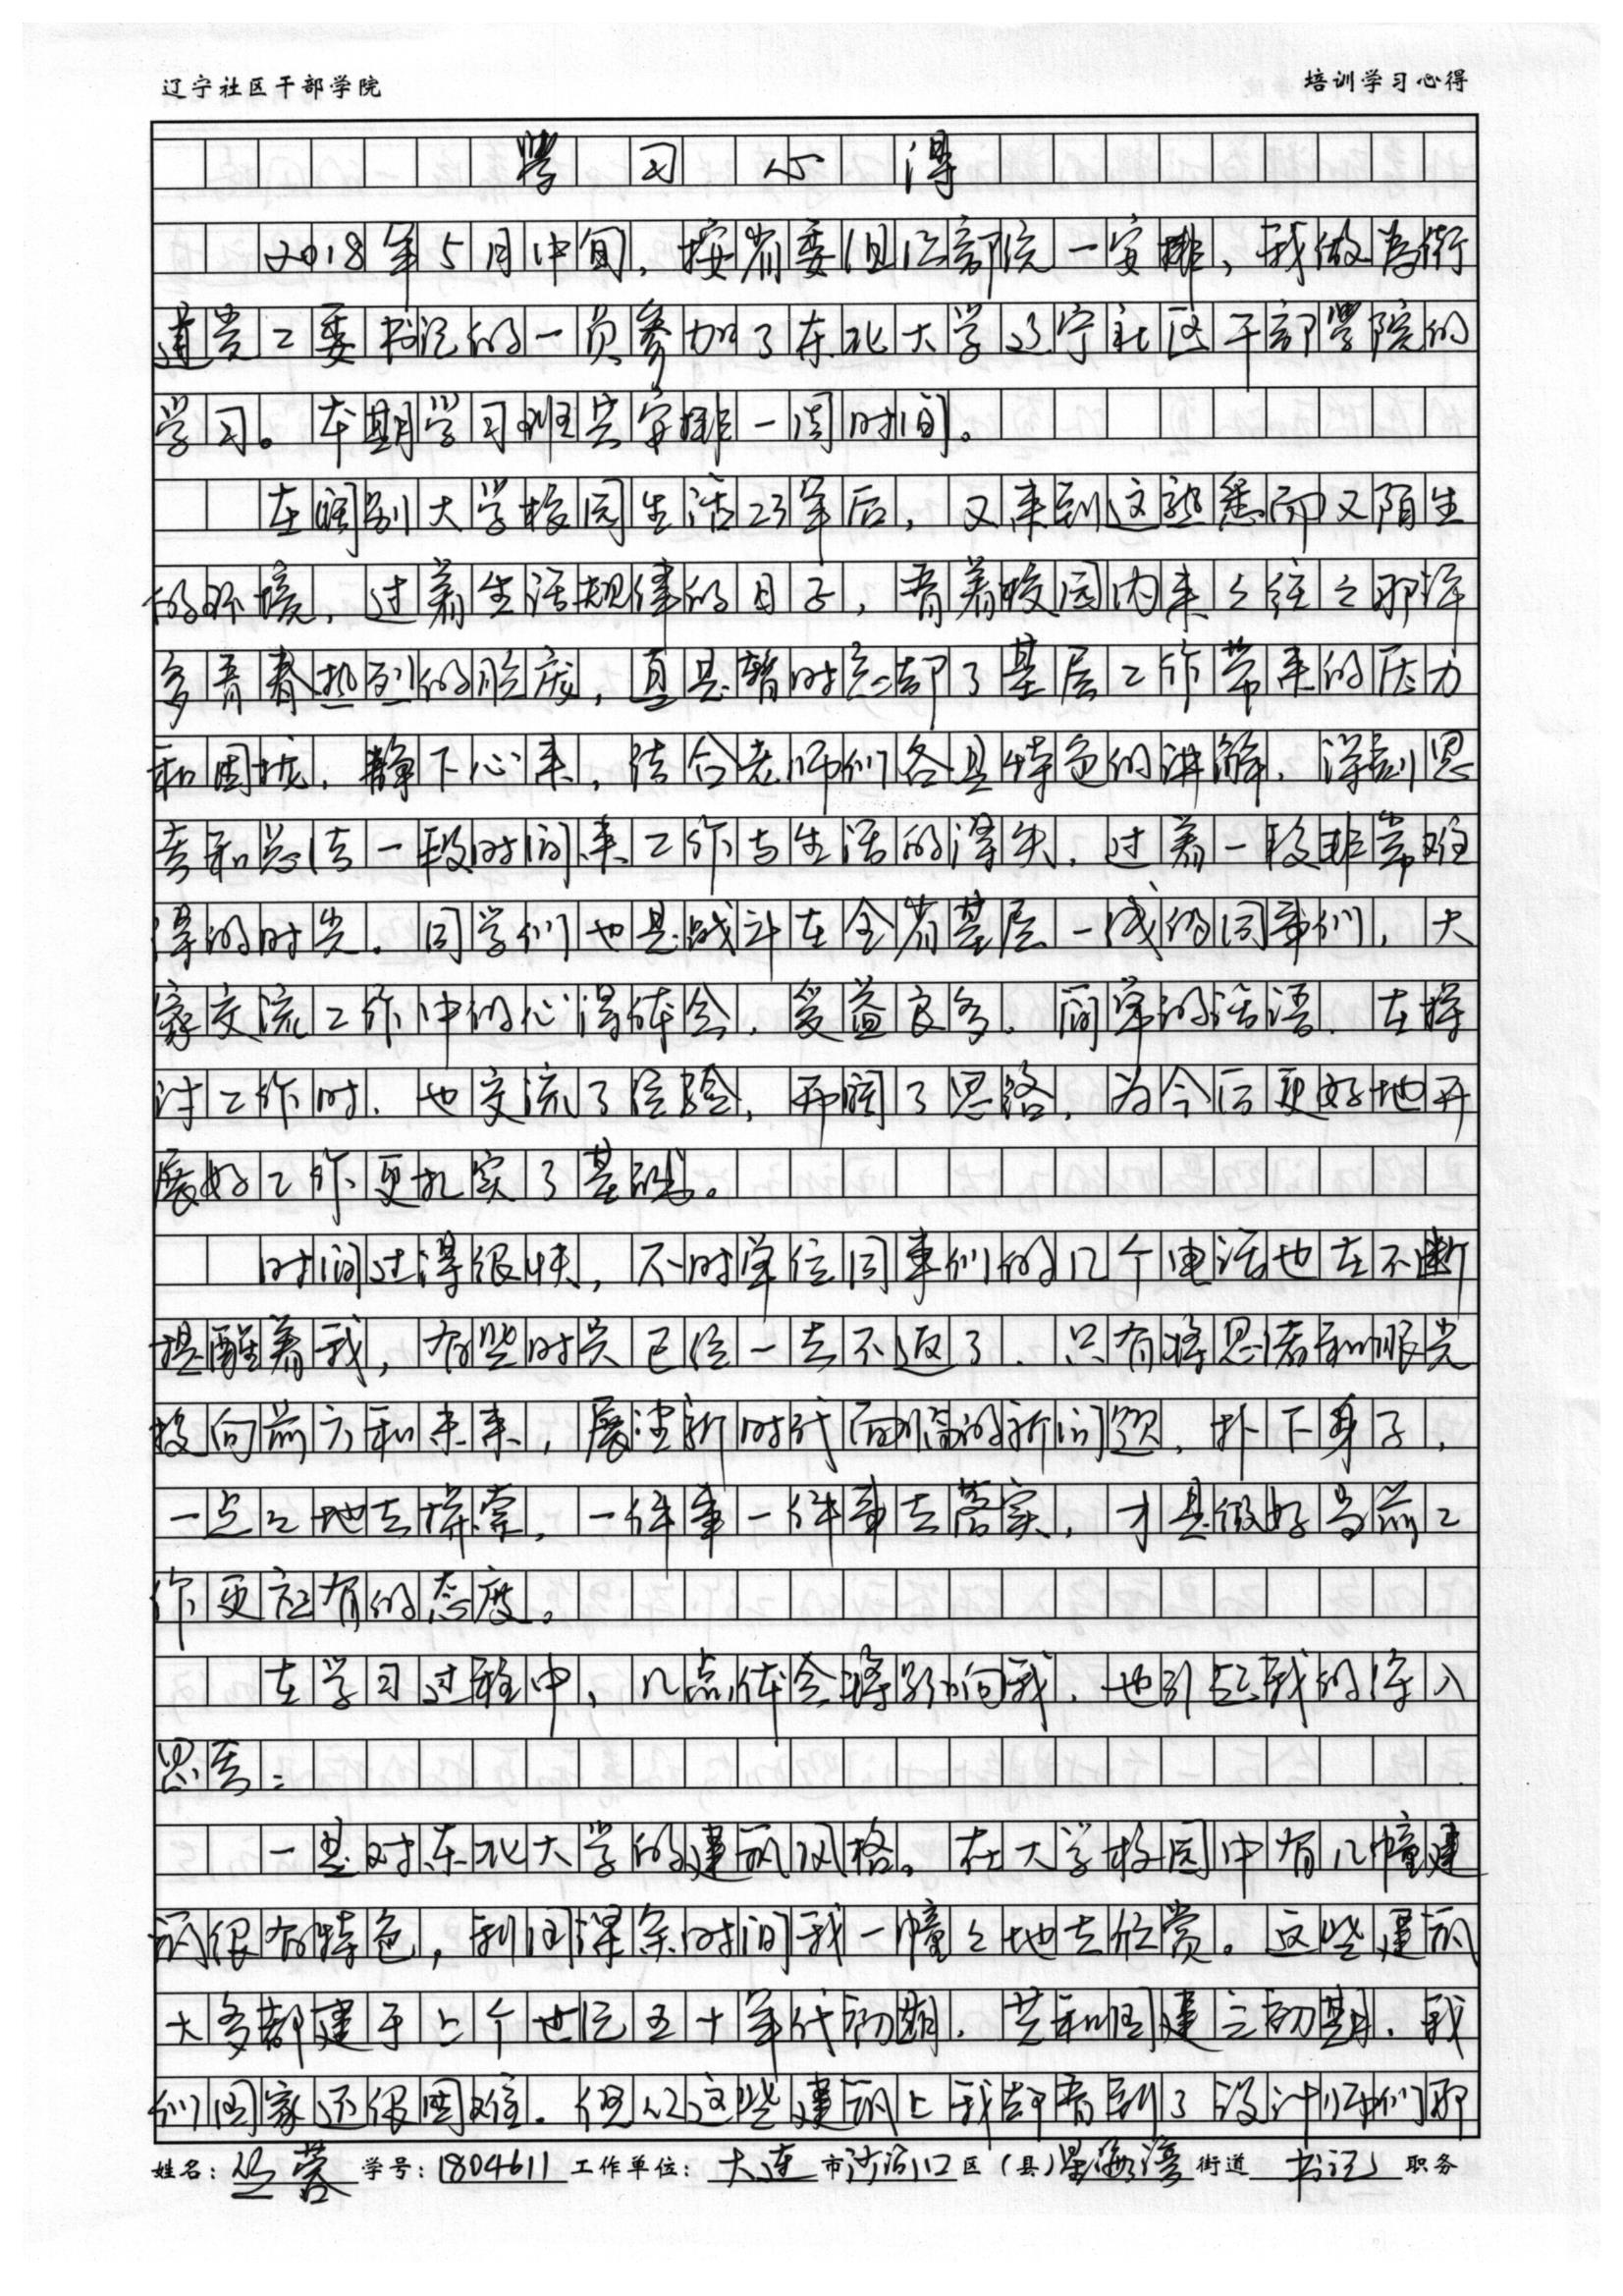 辽宁社区干部学院 培训学习心得
学习心得
2018年5月中旬,按省委组织部统一安排,我做为街
道党工委书记的一员参加了东北大学辽宁社区干部学院的
学习。本期学习班共安排一周时间。
在阔别大学校园生活23年后,又来到这熟悉而又陌生
的环境,过着生活规律的日子,看着校园内来々往々那许
多青春热烈的脸庞,真是暂时忘却了基层工作带来的压力
和困扰,静下心来,结合老师们各具特色的讲解,深刻思
考和总结一段时间来工作与生活的得失,过着一段非常难
得的时光。同学们也是战斗在全省基层一线的同事们,大
家交流工作中的心得体会,受益良多,简单的话语,在探
讨工作时,也交流了经验,开阔了思路,为今后更好地开
展好工作更扎实了基础。
时间过得很快,不时单位同事们的几个电话也在不断
提醒着我,有些时光已经一去不返了,只有将思绪和眼光
投向前方和未来,展望新时代面临的新问题,扑下身子,
一点々地去探索,一件事一件事去落实,才是做好当前工
作更应有的态度。
在学习过程中,几点体会将影响我,也引起我的深入
思考:
一是对东北大学的建筑风格。在大学校园中有几幢建
筑很有特色,利用课余时间我一幢々地去欣赏。这些建筑
大多都建于上个世纪五十年代初期,共和国建立初期,我
们国家还很困难。但从这些建筑上我都看到了设计师们那
姓名: 蓉 学号:1804611 工作单位:大连市沙河口区(县)星海湾街道书记职务